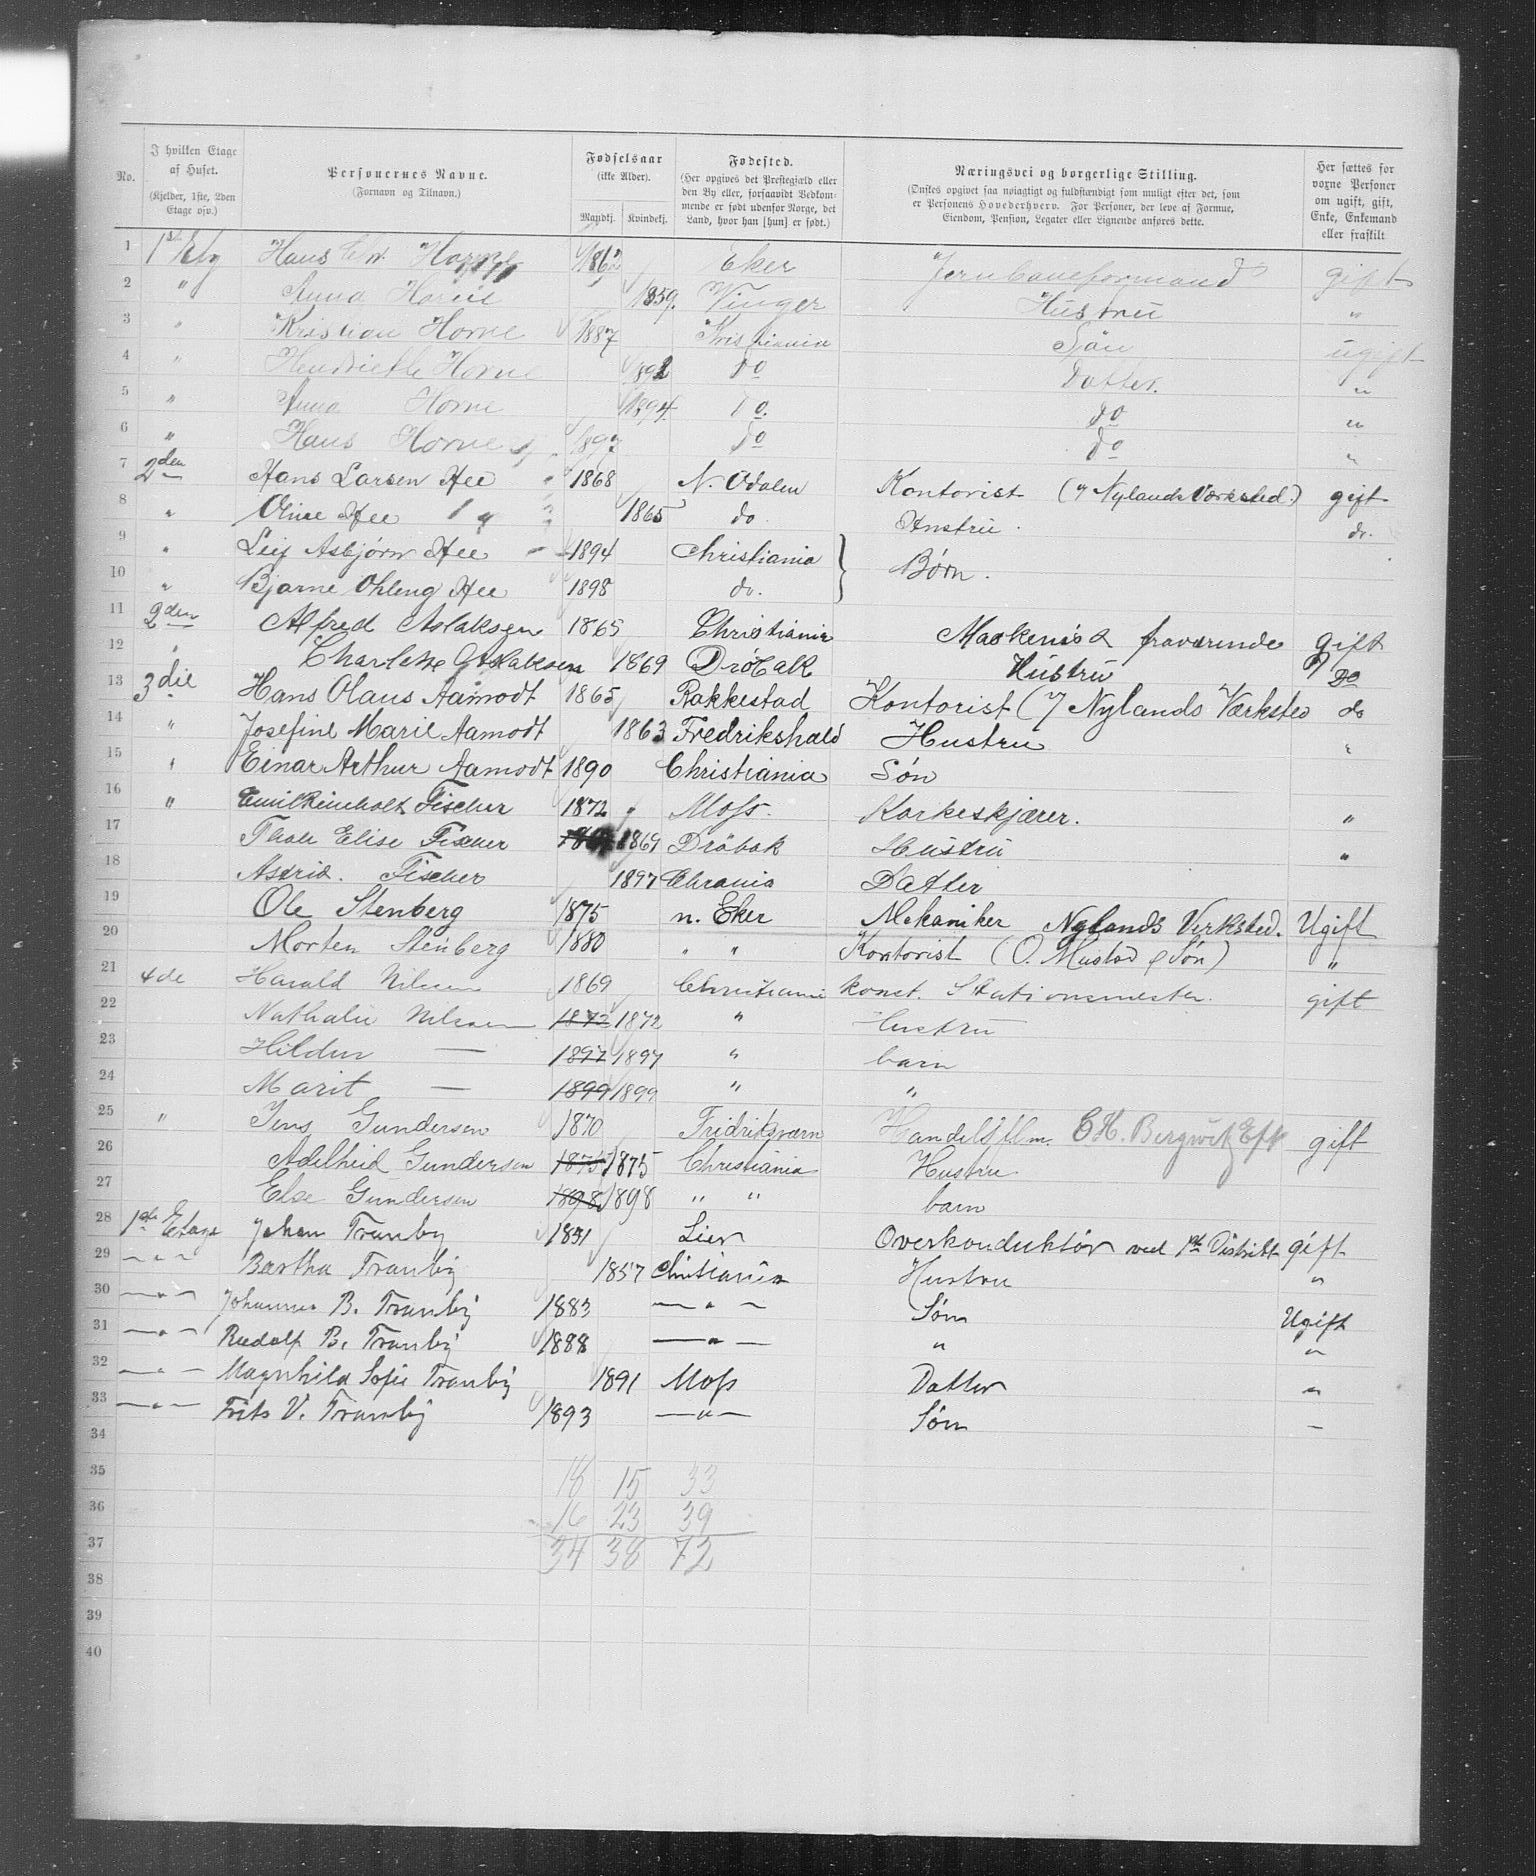 No. | I hvilken Etage af Huset. (Kjelder, 1ste, 2den Etage osv.) | Personernes Navne. (Fornavn og Tilnavn.) | Fødselsaar (ikke Alder). Mandkj. Kvindekj. | Fødested. (Her opgives det Prestegjæld eller den By eller, forsaavidt Vedkommende er født udenfor Norge, det Land, hvor han [hun] er født.) | Næringsvei og borgerlige Stilling. (Ønskes opgivet saa nøiagtigt og fuldstændigt som muligt efter det, som er Personens Hovederhverv. For Personer, der leve af Formue, Eiendom, Pension, Legater eller Lignende anføres dette. | Her sættes for voxne Personer om ugift, gift, Enke, Enkemand eller fraskilt
1 1ste Etg Hans Chr. Horne 1862 Eker Jernbaneformand gift
2 " Anna Horne 1859. Vinger Hustru "
3 " Kristian Horne 1887 Kristiania Søn ugift
4 " Henriette Horne 1892 do Datter. "
5 " Anna Horne 1894 do. do "
6 " Hans Horne 1897 do do "
7 2den Hans Larsen Hee 1868 N. Odalen Kontorist (y Nylands Værksted.) gift
8 " Oline Hee 1865 do Hustru. do.
9 " Leif Asbjørn Hee 1894 Christiania } Børn.
10 " Bjarne Ohleng Hee 1898 do.
11 2den Alfred Aslaksen 1865 Christiania Maskenist fraværende gift
12 " Charlotte Aslaksen 1869 Dröbak Hustru Do
13 3die Hans Olaus Aamodt 1865 Rakkestad Kontorist (y Nylands Værksted do
14 " Josefine Marie Aamodt 1863 Fredrikshald Hustru "
15 " Einar Arthur Aamodt 1890 Christiania Søn
16 " Emil Reinholt Fischer 1872 Moss. Korkeskjærer. "
17 Thale Elise Fischer 1869 Dröbak Hustru "
18 Astrid. Fischer 1897 Chrania Datter
19 Ole Stenberg 1875 n. Eker Mekaniker Nylands Verksted. Ugift
20 Morten Stenberg 1880 " " Kontorist (O. Mustad & Søn) "
21 4de Harald Nilsen 1869 Christiania konst. Stationsmester. gift
22 Nathalie Nilsen 1872 1872 " Hustru
23 Hildur — 1897 1897 " barn
24 Marit — 1899 1899 " "
25 " Jens Gundersen 1870 Fridriksværn Handelsflm. C H. Bergwitz Eftf gift
26 Adelheid Gundersen 1875 1875 Christiania Hustru
27 Else Gundersen 1898 1898 " " barn
28 1ste Etage Johan Tranby 1851 Lier Overkonduktör ved 1ste Distrikt gift
29 — " — Bartha Tranby 1857 Christiania Hustru "
30 — " — Johannes B. Tranby 1883 — " — Søn Ugift
31 — " — Rudolf B. Tranby 1888 — " — " "
32 — " — Magnhild Sofie Tranby 1891 Moss Datter "
33 — " — Frits V. Tranby 1893 — " — Søn —
34
35 18 15 33
36 16 23 39
37 34 38 72
38
39
40